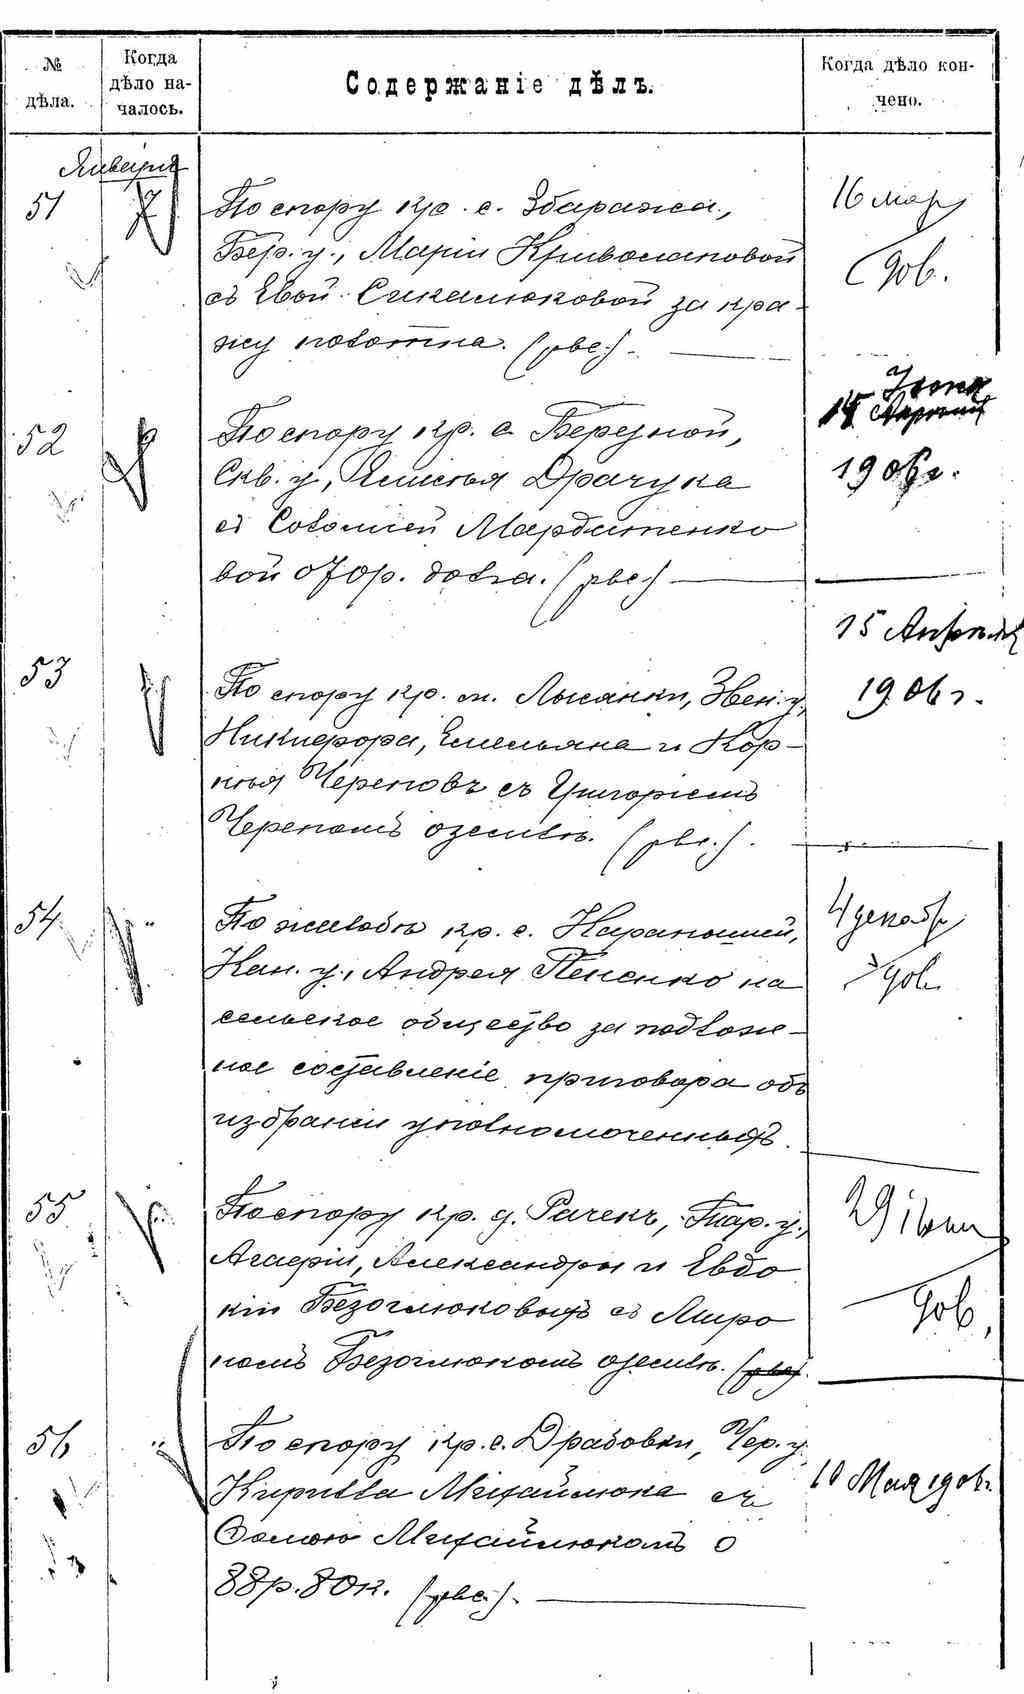 № дѣла.
Когда дѣло началось.
Содержаніе дѣлъ.
Когда дѣло кончено.
Января
51
7
По спору кр. с. Збаража,
Бер. у., Маріи Кривошаповой
съ Евой Сикалюковой за кра-
жу полотна. (рѣв.)
16 мар
дов.
52
По спору кр. с. Березной,
Скв. у., Ялисея Драчука
съ Соломіей Мардитенко
вой о 70р. долга. (рѣв.)
15 Іюня
1906г.
53
По спору кр. м. Лысянки, Звен. у.,
Никифора, Емельяна и Кор-
нія Череповъ съ Григоріемъ
Черепомъ о землѣ. (рѣв.).
15 Апрѣля
1906 г.
54
"
По жалобѣ кр. с.
Кан. у., Андрея Пененко на
сельское общество за подлож-
ное составленіе приговора объ
избраніи уполномоченныхъ.
4 декабр
дов
55
По спору кр. д. Рачекъ, Тар. у.,
Агафіи, Александры и Евдо
кіи Безоглюковыхъ съ Миро
номъ Безоглюкомъ о землѣ. (рѣв).
29 іюня
дов.
56
"
По спору кр. с. Драбовки, Чер. у.
Кирилла Михайлюка съ
Ѳомою Михайлюкомъ о
88р. 80к. (рѣв.).
10 Мая 1906г.